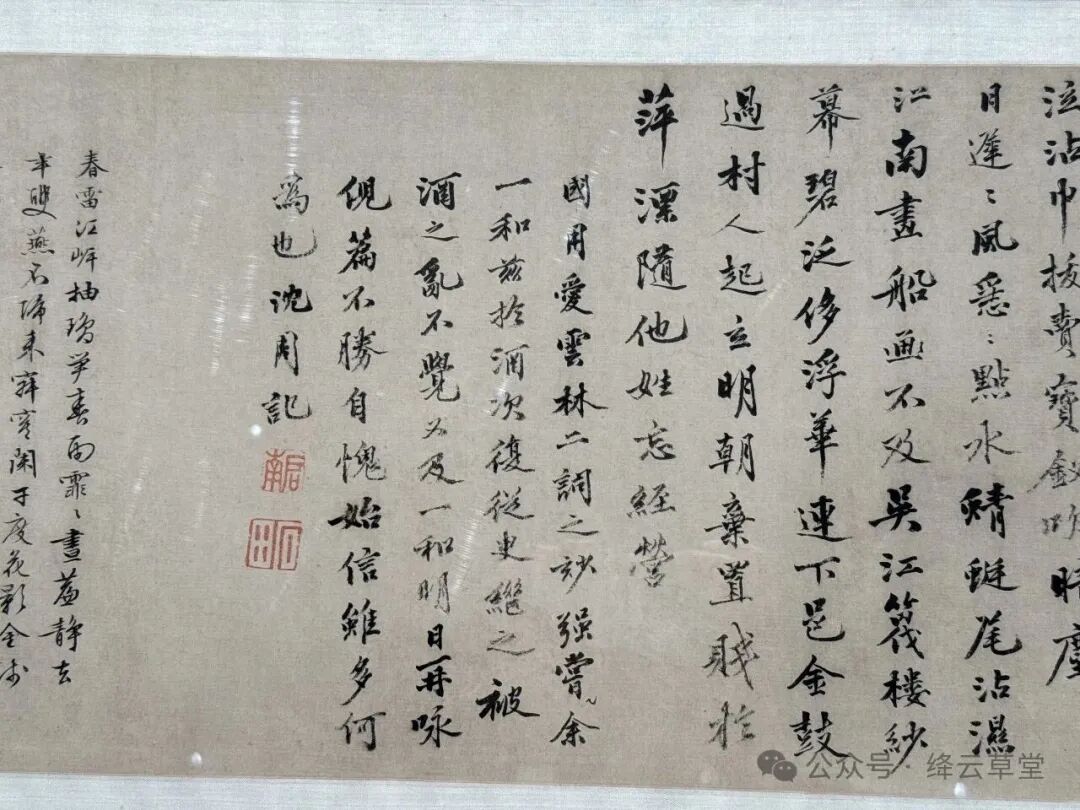 泣沾巾拔賣寶釵暗塵
日遲〻風急〻點水蜻蜓尾沾濕
江南畫船畫不及吳江筏樓紗
幕碧泛侈浮華連下邑金鼓
過村人起立明朝棄置賤於
萍漂隨他姓忘經營
國用愛雲林二詞之妙強嘗余
一和茲於酒次復從臾繼之被
酒之亂不覺又及一和明日再咏
倪篇不勝自愧始信雖多何
為也沈周記
啟南
石田
春雷江岸抽瓊笋春雨霏〻晝靜
雙燕歸來寂寞閑子度花影金
公众号·绛云草堂